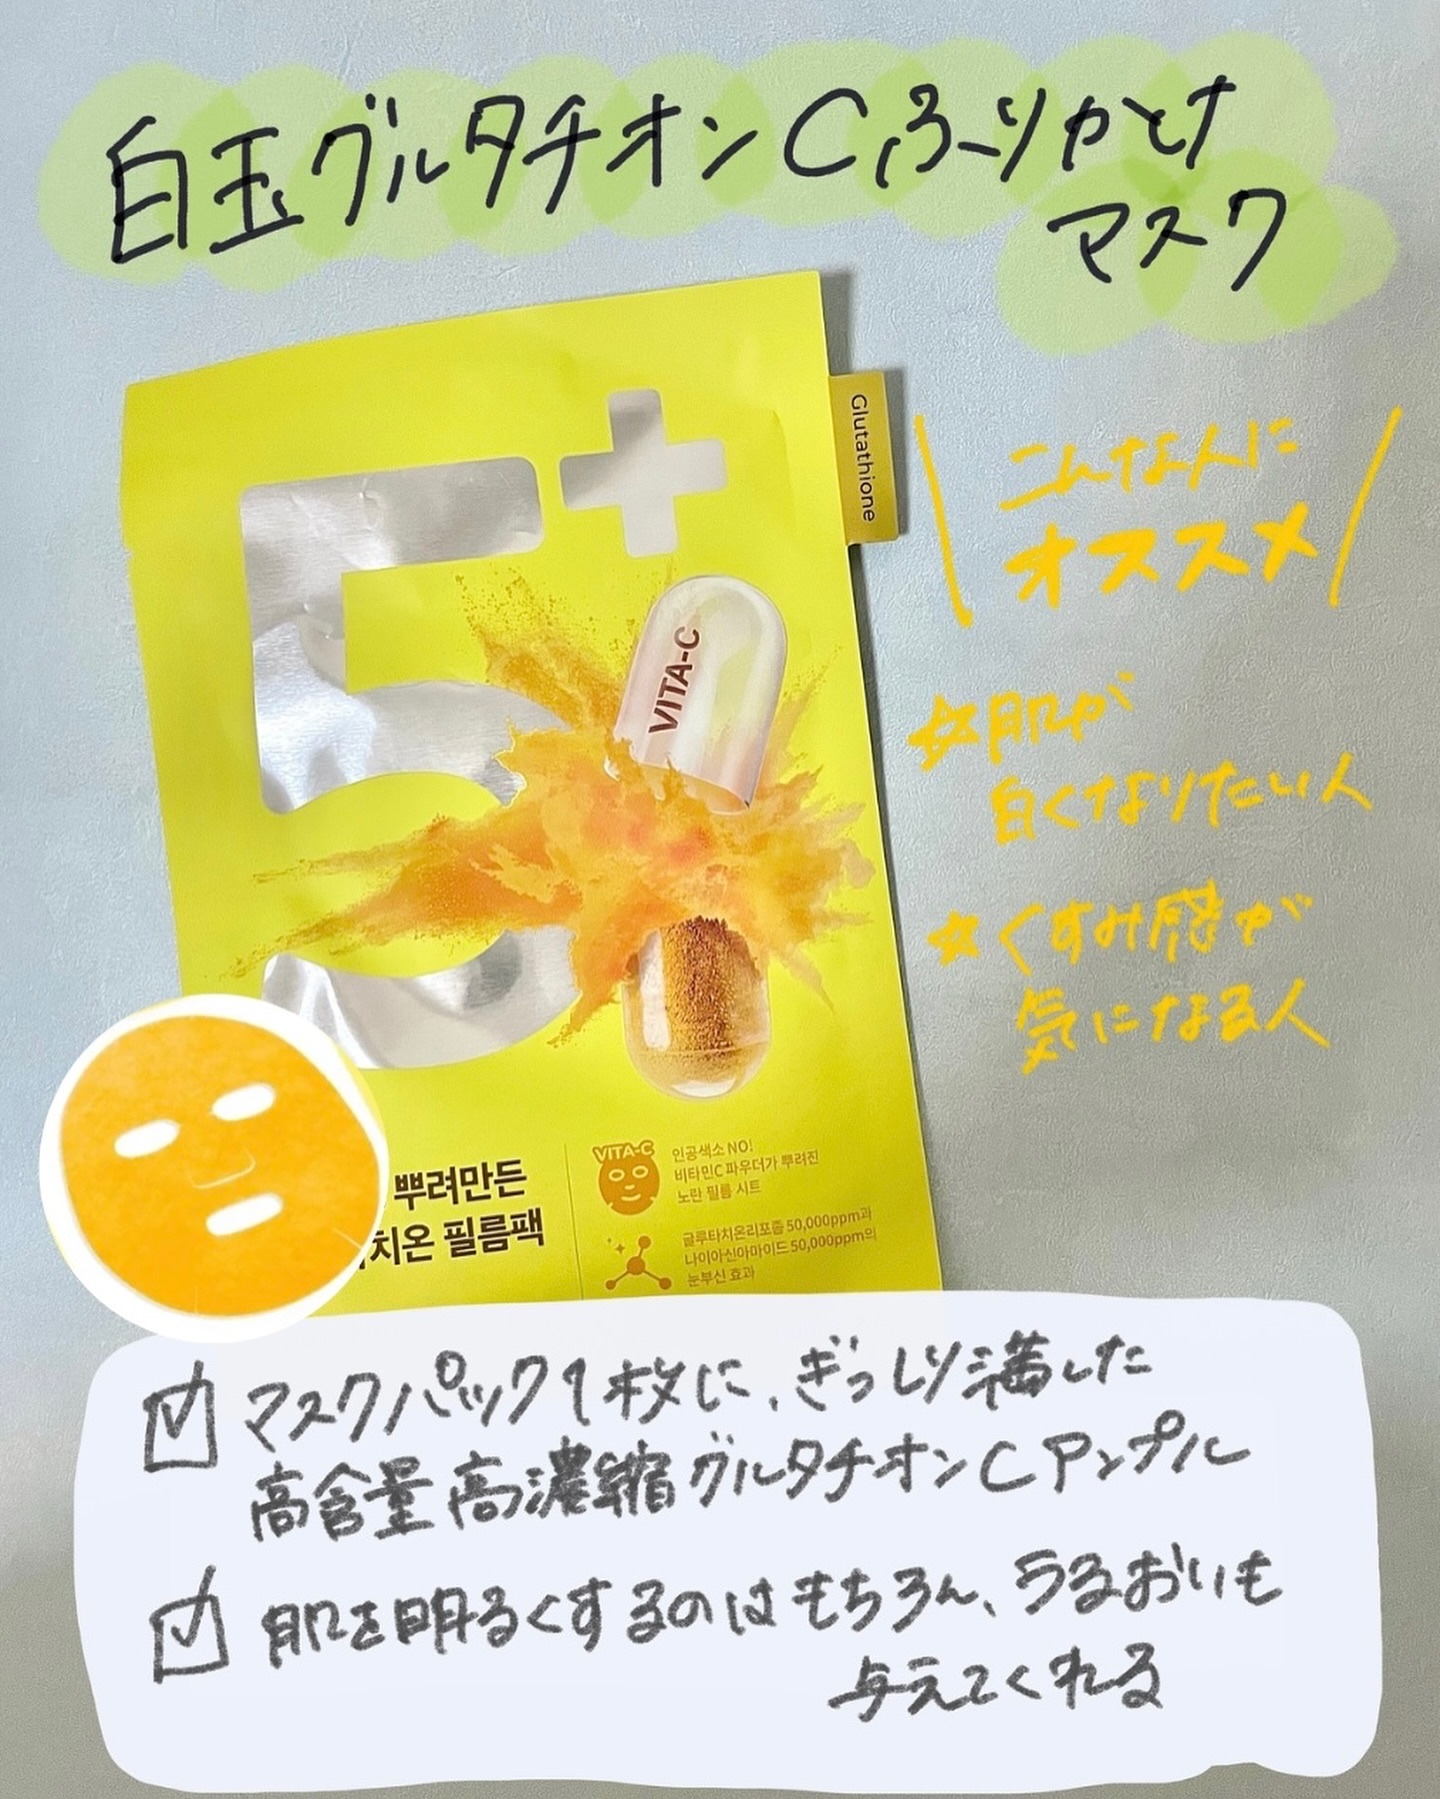 白玉グルタチオンCふりかけ
マスク
Glutathione
5+
VITA-C
こんな人に
オススメ
☆肌が
白くなりたい人
☆くすみ感が
気になる人
뿌려만든
치온 필름팩
VITA-C
인공색소 NO!
비타민C 파우더가 뿌려진
노란 필름 시트
글루타치온리포좀 50,000ppm과
나이아신아마이드 50,000ppm의
눈부신 효과
マスクパック1枚に、ぎっしり満した
高含量高濃縮グルタチオンCアンプル
肌を明るくするのはもちろん、うるおいも
与えてくれる